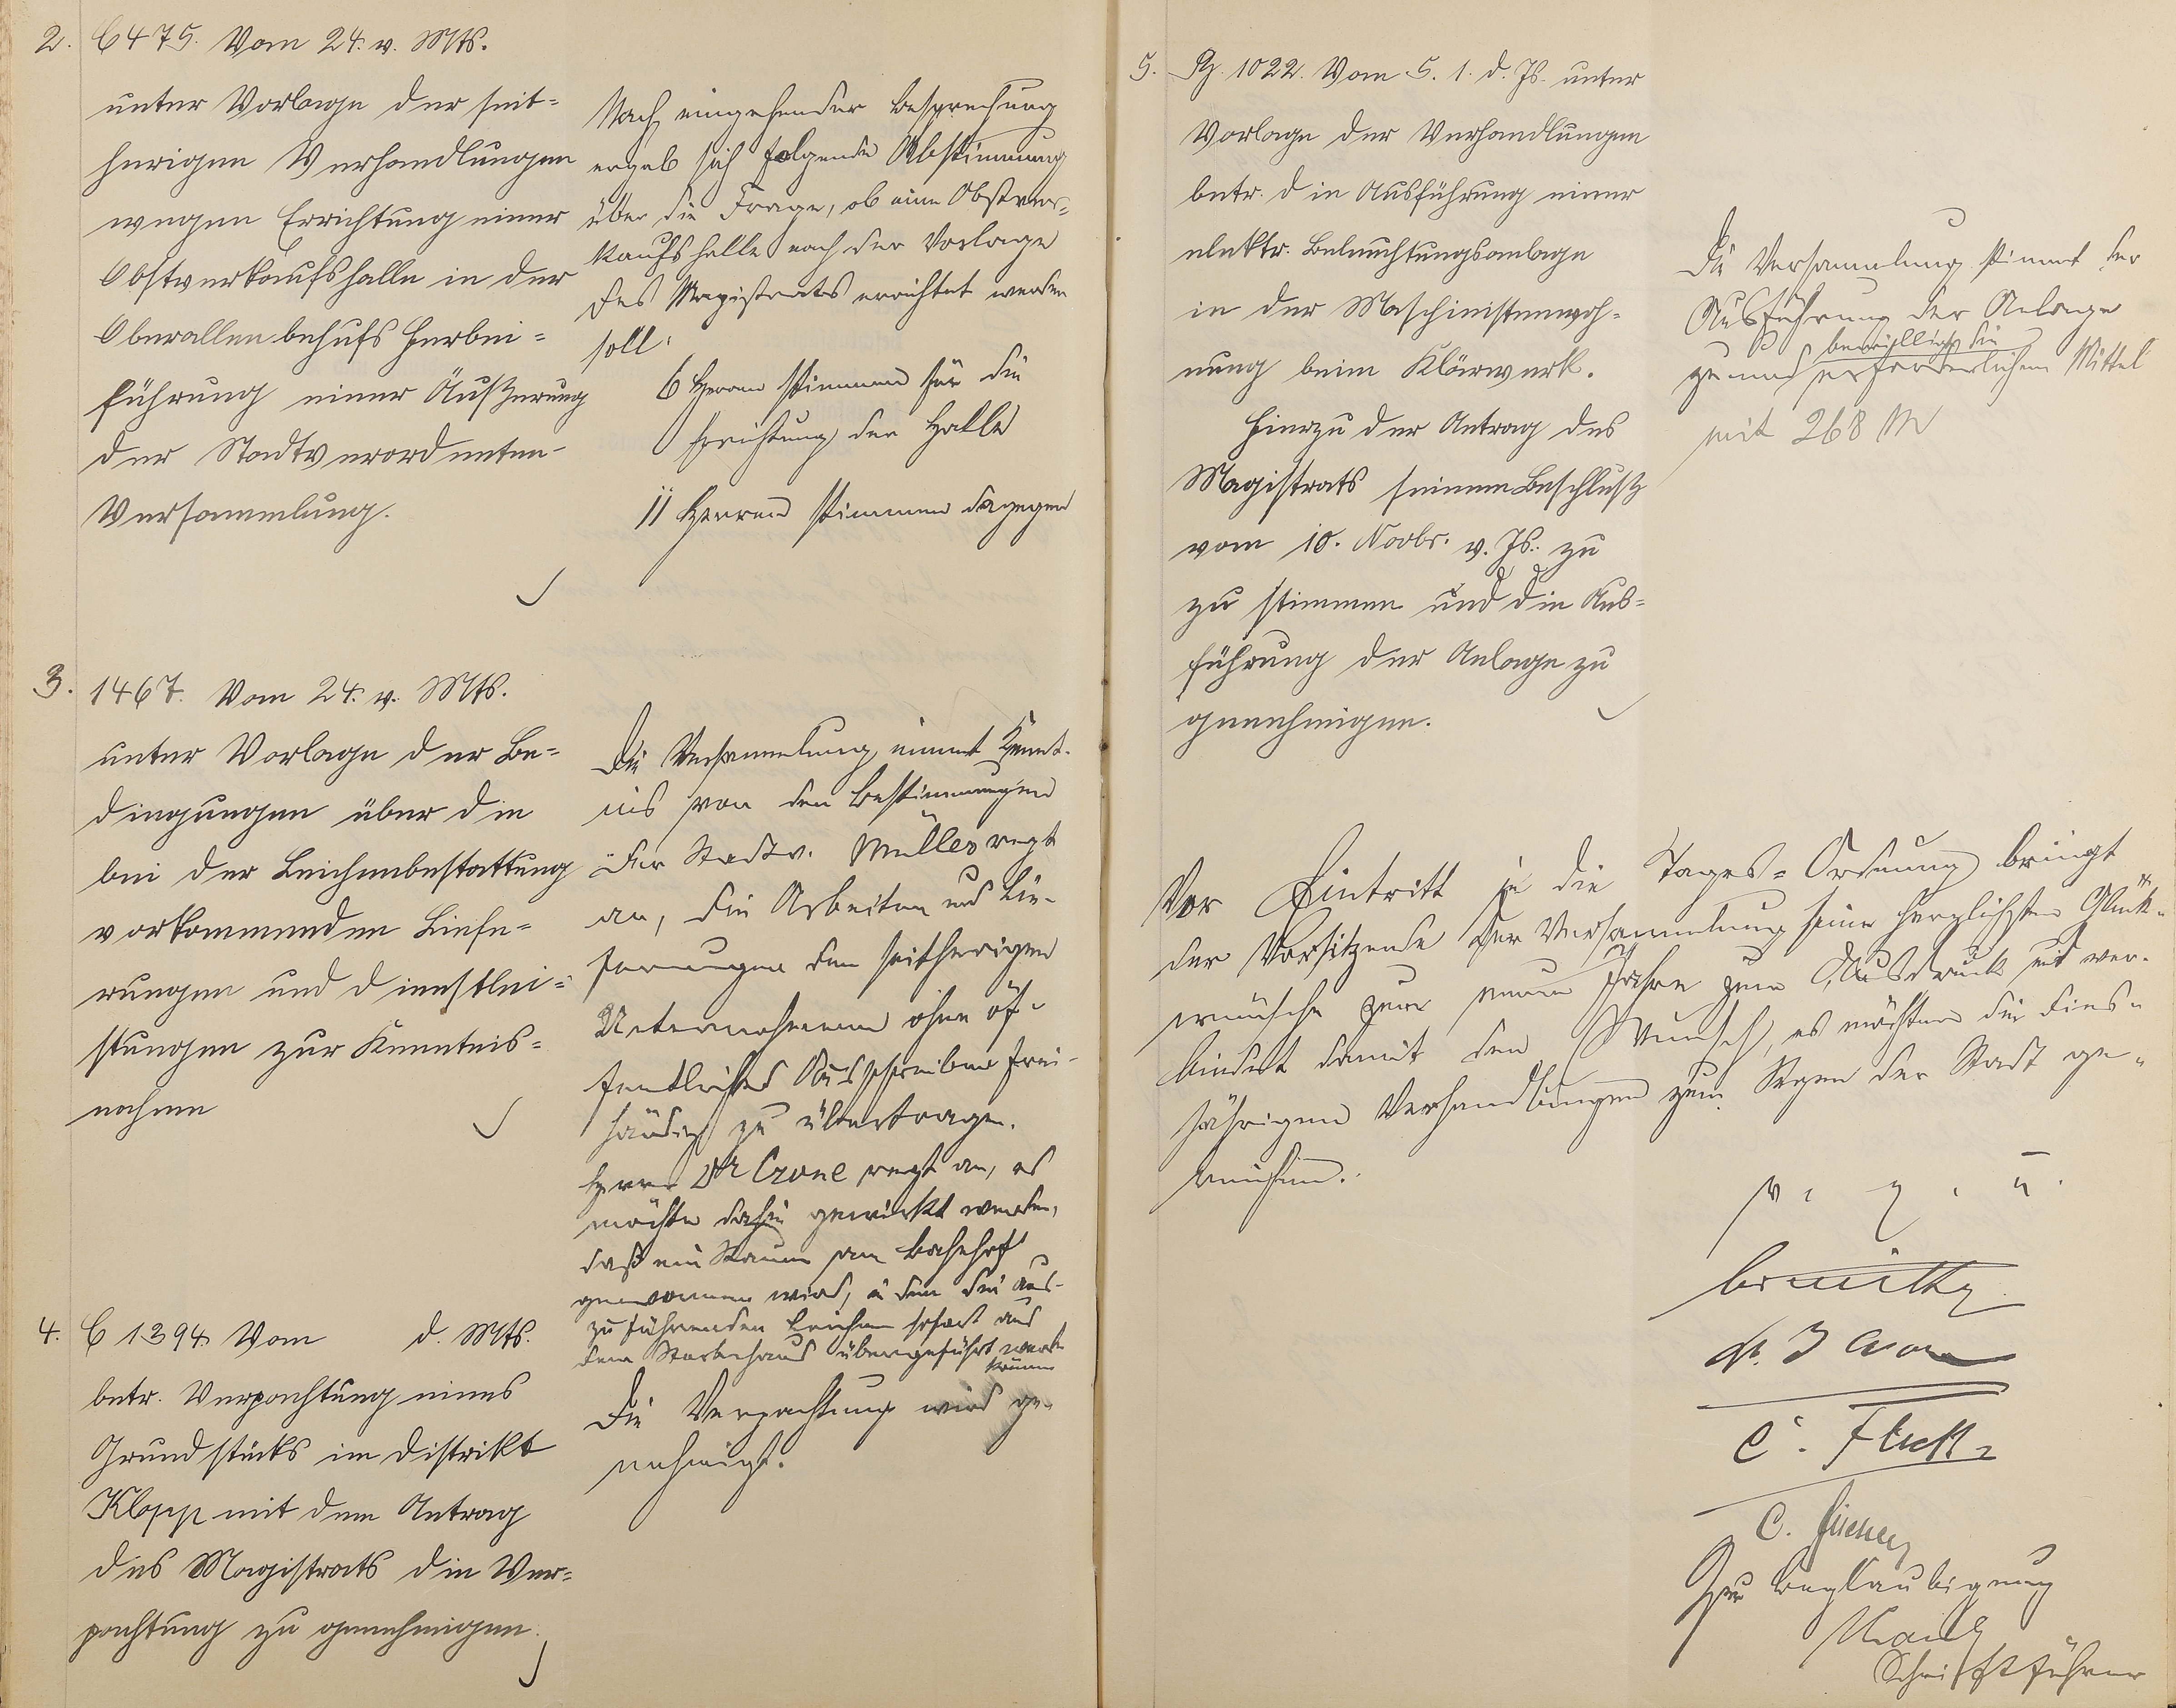 2. C 475. Vom 24. v. Mts.
unter Vorlage der seit-
herigen Verhandlungen
wegen Errichtung einer
Obstverkaufshalle in der
Oberallee behufs Herbei-
führung einer Äußerung
der Stadtverordneten-
Versammlung.
Nach eingehender Besprechung
ergab sich folgende Abstimmung
über die Frage, ob eine Obstver-
kaufshalle nach der Vorlage
des Magistrats errichtet werden
soll:
6 Herren stimmen für die
Errichtung der Halle
11 Herren stimmen dagegen
3. 1467. Vom 24. v. Mts.
unter Vorlage der Be-
dingungen über die
bei der Leichenbestattung
vorkommenden Liefe-
rungen und Dienstlei-
stungen zur Kenntnis-
nahme
Die Versammlung nimmt Kennt-
nis von den Bestimmungen
Der Stadtv. Müller regt
an, die Arbeiten und Lie-
ferungen den seitherigen
Unternehmern ohne öf-
fentliches Ausschreiben frei-
händig zu übertragen.
Herr Dr Crone regt an, es
möchte dahin gewirkt werden,
daß ein Raum am Bahnhof
gewonnen wird, in dem die aus-
zuführenden Leichen sofort aus
dem Sterbehaus übergeführt werden
können
4. C 1394. Vom d. Mts.
betr. Verpachtung eines
Grundstücks im Distrikt
Klopp mit dem Antrag
des Magistrats die Ver-
pachtung zu genehmigen.
Die Verpachtung wird ge-
nehmigt.
5. Pz. 1022. Vom 5. 1. d. Js. unter
Vorlage der Verhandlungen
betr. die Ausführung einer
elektr. Beleuchtungsanlage
in der Maschinistenwoh-
nung beim Klärwerk.
Hierzu der Antrag des
Magistrats seinem Beschluß
vom 10. Novbr. v. Js. zu
zu stimmen und die Aus-
führung der Anlage zu
genehmigen.
Die Versammlung stimmt der
Ausführung der Anlage
bewilligt die
zu und erforderlichen Mittel
mit 268 M
Vor Eintritt in die Tages-Ordnung bringt
der Vorsitzende der Versammlung seine herzlichsten Glück-
wünsche zum neuen Jahre zum Ausdruck und ver-
bindet damit den Wunsch, es möchten die dies-
jährigen Verhandlungen zum Segen der Stadt ge-
reichen.
v. g. u.
C. Fleck
Zur Beglaubigung
Schriftführer